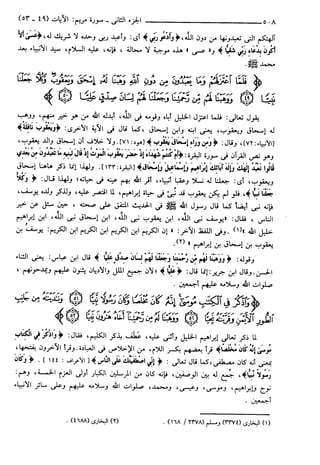 ٥٠٨ الجزء الثاني - سورة مريم: الآيات (٤٩ - ٥٣)
آلهتكم التي تعبدونها من دون الله، ﴿وَأَدْعُو رَبِّي﴾ أي: وأعبد ربي وحده لا شريك له، ﴿عَسَىٰ أَلَّا
أَكُونَ بِدُعَاءِ رَبِّي شَقِيًّا﴾ و« عسى » هذه موجبة لا محالة ، فإنه، عليه السلام، سيد الأنبياء بعد
محمد ﷺ.
﴿فَلَمَّا اعْتَزَلَهُمْ وَمَا يَعْبُدُونَ مِن دُونِ اللَّهِ وَهَبْنَا لَهُ إِسْحَاقَ وَيَعْقُوبَ وَكُلًّا جَعَلْنَا نَبِيًّا ﴿٤٩﴾
وَوَهَبْنَا لَهُم مِّن رَّحْمَتِنَا وَجَعَلْنَا لَهُمْ لِسَانَ صِدْقٍ عَلِيًّا ﴿٥٠﴾
يقول تعالى: فلما اعتزل الخليل أباه وقومه في الله، أبدله الله من هو خير منهم، ووهب
له إسحاق ويعقوب، يعني ابنه وابن إسحاق ،كما قال في الآية الأخرى: ﴿وَيَعْقُوبَ نَافِلَةً﴾
[الأنبياء: ٧٢]، وقال: ﴿وَمِن وَرَاءِ إِسْحَاقَ يَعْقُوبَ﴾ [هود: ٧١]. ولا خلاف أن إسحاق والد يعقوب،
وهو نص القرآن في سورة البقرة: ﴿أَمْ كُنتُمْ شُهَدَاءَ إِذْ حَضَرَ يَعْقُوبَ الْمَوْتُ إِذْ قَالَ لِبَنِيهِ مَا تَعْبُدُونَ مِن بَعْدِي
قَالُوا نَعْبُدُ إِلَٰهَكَ وَإِلَٰهَ آبَائِكَ إِبْرَاهِيمَ وَإِسْمَاعِيلَ وَإِسْحَاقَ﴾ [البقرة: ١٣٣]. ولهذا إنما ذكر هاهنا إسحاق
ويعقوب، أي: جعلنا له نسلا وعقبا أنبياء، أقر الله بهم عينه في حياته؛ ولهذا قال: ﴿وَكُلًّا
جَعَلْنَا نَبِيًّا﴾، فلو لم يكن يعقوب قد نبئ في حياة إبراهيم، لما اقتصر عليه، ولذكر ولده يوسف،
فإنه نبي أيضا كما قال رسول الله ﷺ في الحديث المتفق على صحته ، حين سئل عن خير
الناس ، فقال: «يوسف نبي الله، ابن يعقوب نبي الله، ابن إسحاق نبي الله، ابن إبراهيم
خليل الله »(١). وفي اللفظ الآخر: « إن الكريم ابن الكريم ابن الكريم ابن الكريم: يوسف بن
يعقوب بن إسحاق بن إبراهيم »(٢).
وقوله: ﴿وَوَهَبْنَا لَهُم مِّن رَّحْمَتِنَا وَجَعَلْنَا لَهُمْ لِسَانَ صِدْقٍ عَلِيًّا﴾ ، قال ابن عباس: يعني الثناء
الحسن. وقال ابن جرير: إنما قال: ﴿عَلِيًّا﴾ ؛ لأن جميع الملل والأديان يثنون عليهم ويمدحونهم ،
صلوات الله وسلامه عليهم أجمعين .
﴿وَاذْكُرْ فِي الْكِتَابِ مُوسَىٰ إِنَّهُ كَانَ مُخْلَصًا وَكَانَ رَسُولًا نَّبِيًّا ﴿٥١﴾ وَنَادَيْنَاهُ مِن جَانِبِ
الطُّورِ الْأَيْمَنِ وَقَرَّبْنَاهُ نَجِيًّا ﴿٥٢﴾ وَوَهَبْنَا لَهُ مِن رَّحْمَتِنَا أَخَاهُ هَارُونَ نَبِيًّا ﴿٥٣﴾
لما ذكر تعالى إبراهيم الخليل وأثنى عليه، عطف بذكر الكليم، فقال: ﴿وَاذْكُرْ فِي الْكِتَابِ
مُوسَىٰ إِنَّهُ كَانَ مُخْلَصًا﴾ قرأ بعضهم بكسر اللام، من الإخلاص في العبادة. وقرأ الآخرون بفتحها،
بمعنى أنه كان مصطفى،كما قال تعالى : ﴿إِنِّي اصْطَفَيْتُكَ عَلَى النَّاسِ﴾ [ الأعراف : ١٤٤] . ﴿وَكَانَ
رَسُولًا نَّبِيًّا﴾، جمع له بين الوصفين، فإنه كان من المرسلين الكبار أولي العزم الخمسة، وهم:
نوح وإبراهيم، وموسى، وعيسى، ومحمد، صلوات الله وسلامه عليهم وعلى سائر الأنبياء
أجمعين .
(١) البخاري (٣٣٧٤) ومسلم (٢٣٧٨ / ١٦٨) . (٢) البخاري (٤٦٨٨) .